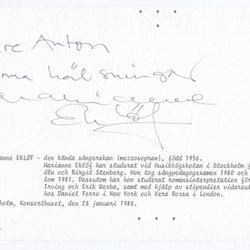 re Anton
varma hälsningar
Marianne
Eklöf
anne EKLÖF - den kända sångerskan (mezzosopran), född 1956.
Marianne Eklöf har studerat vid Musikhögskolan i Stockholm f
dén och Birgit Stenberg. Hon tog sångpedagogexamen 1980 och
tom 1981. Dessutom har hon studerat romansinterpretation f
Irving och Erik Werba, samt med hjälp av stipendier vidareut
hos Daniel Ferro i New York och Vera Rozsa i London.
holm, Konserthuset, den 28 januari 1986.